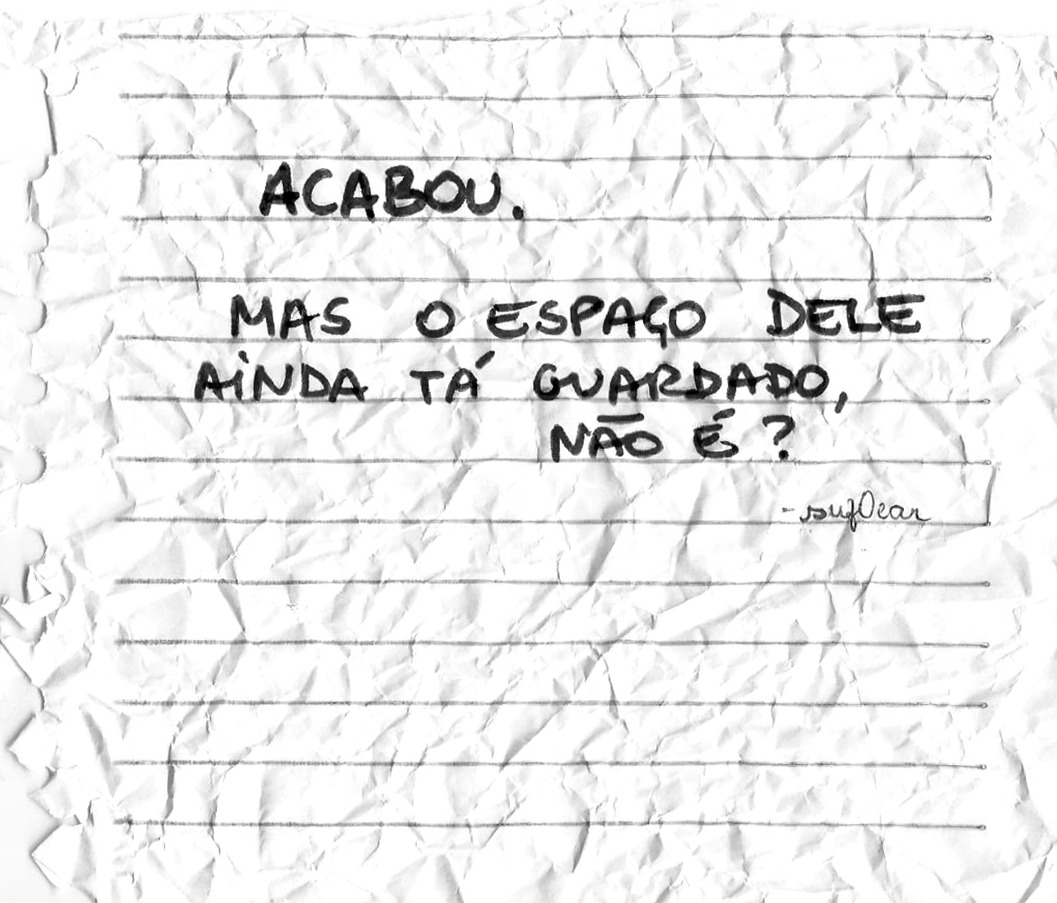 ACABOU.
MAS O ESPAÇO DELE
AINDA TÁ GUARDADO,
NÃO É?